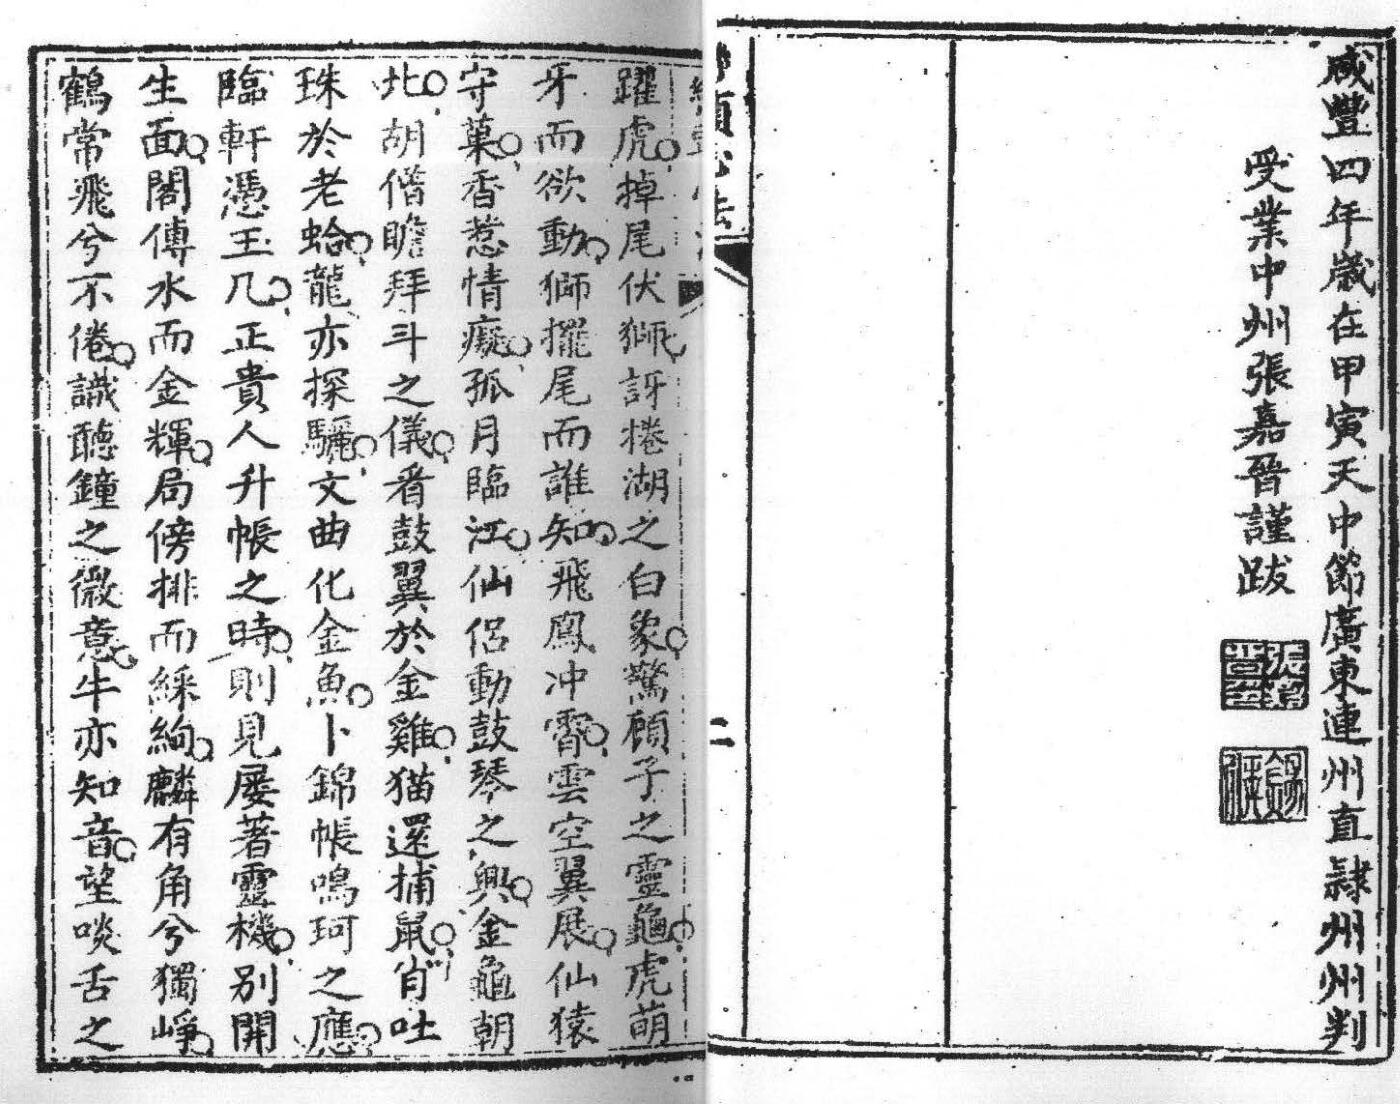 咸豐四年歲在甲寅天中節廣東連州直隸州州判
受業中州張嘉晉謹跋
二
躍虎掉尾伏獅訝捲湖之白象驚顧子之靈龜虎萌
牙而欲動獅擺尾而誰知飛鳳冲霄雲空翼展仙猿
守菓香惹情癡孤月臨江仙侶動鼓琴之興金龜朝
北胡僧瞻拜斗之儀看鼓翼於金雞猫還捕鼠肯吐
珠於老蛤龍亦探驪文曲化金魚卜錦帳鳴珂之應
臨軒憑玉几正貴人升帳之時則見屡著靈機別開
生面閣傅水而金輝局傍排而綵絢麟有角兮獨崢
鶴常飛兮不倦識聽鐘之微意牛亦知音望啖舌之